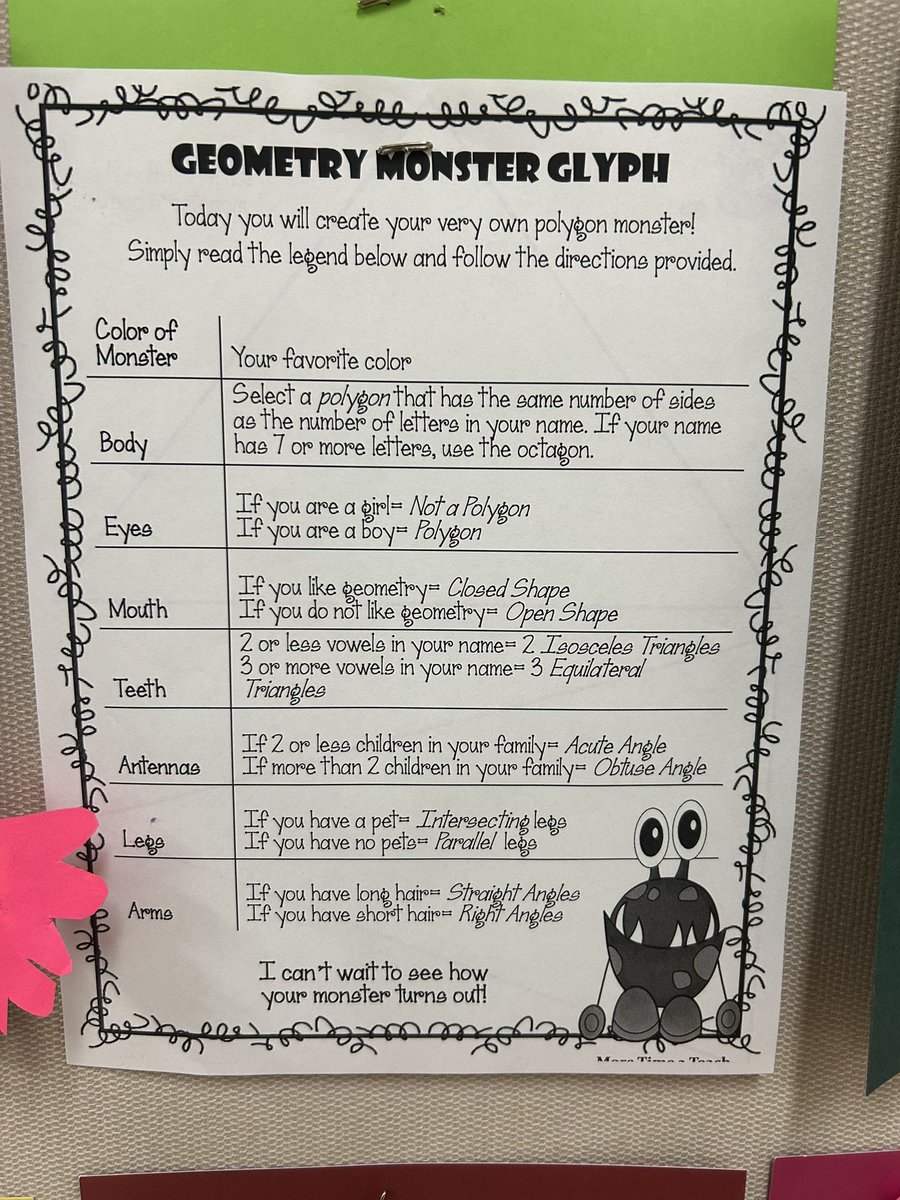 GEOMETRY MONSTER GLYPH
Today you will create your very own polygon monster!
Simply read the legend below and follow the directions provided.
Color of
Monster
Your favorite color
Body
Select a polygon that has the same number of sides
as the number of letters in your name. If your name
has 7 or more letters, use the octagon.
Eyes
If you are a girl= Not a Polygon
If you are a boy= Polygon
Mouth
If you like geometry= Closed Shape
If you do not like geometry= Open Shape
Teeth
2 or less vowels in your name= 2 Isosceles Triangles
3 or more vowels in your name= 3 Equilateral
Triangles
Antennas
If 2 or less children in your family= Acute Angle
If more than 2 children in your family= Obtuse Angle
Legs
If you have a pet= Intersecting legs
If you have no pets= Parallel legs
Arms
If you have long hair= Straight Angles
If you have short hair= Right Angles
I can't wait to see how
your monster turns out!
More Time 2 Teach